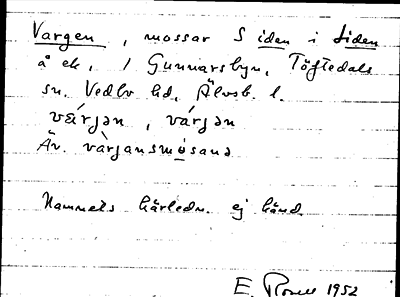 Vargen, mossar S iden i Siden
å ek, i Gunnarsbyn, Töftedals
sn. Vedbo hd, Älvsb. l.
vä́rjən, várjən
Äv. vàrjansmósanə
Namnets härledn. ej känd.
E. 1952